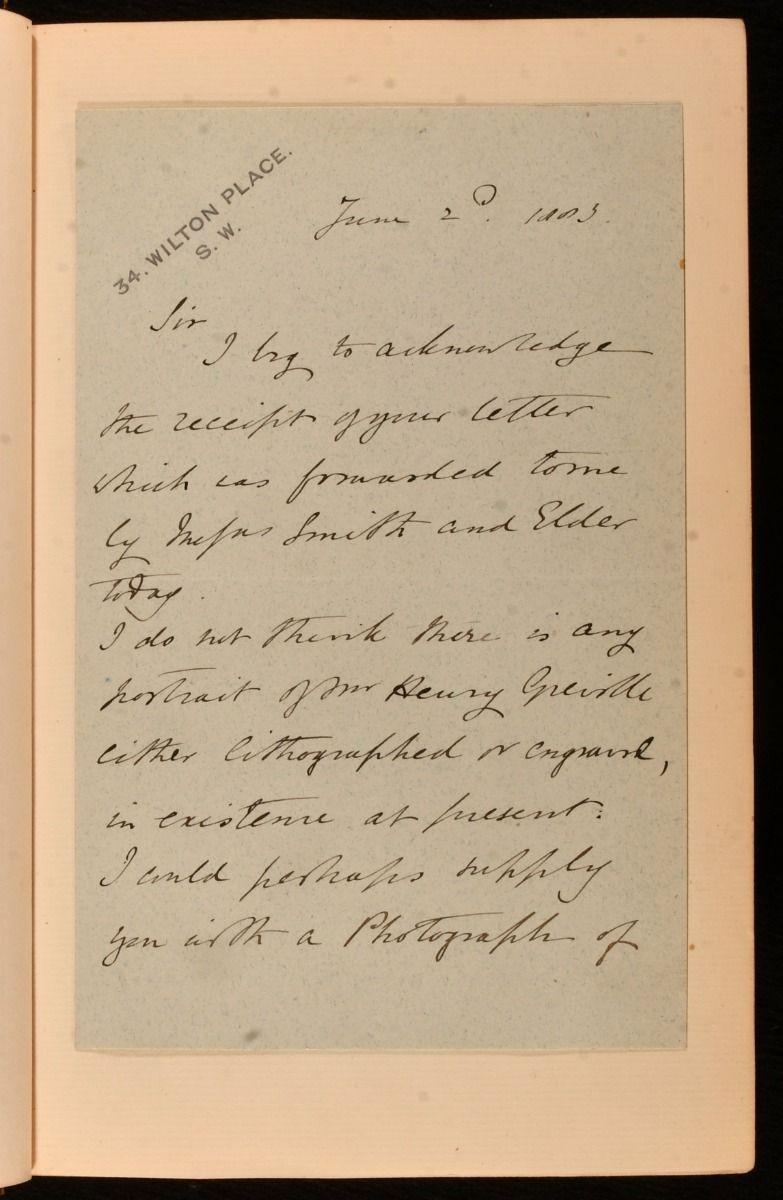 34. WILTON PLACE.
S. W.
June 2d. 1883.
Sir
I beg to acknowledge
the receipt of your letter
which was forwarded to me
by Messrs Smith and Elder
today.
I do not think there is any
portrait of Mr Henry Greville
either lithographed or engraved,
in existence at present:
I could perhaps supply
you with a Photograph of